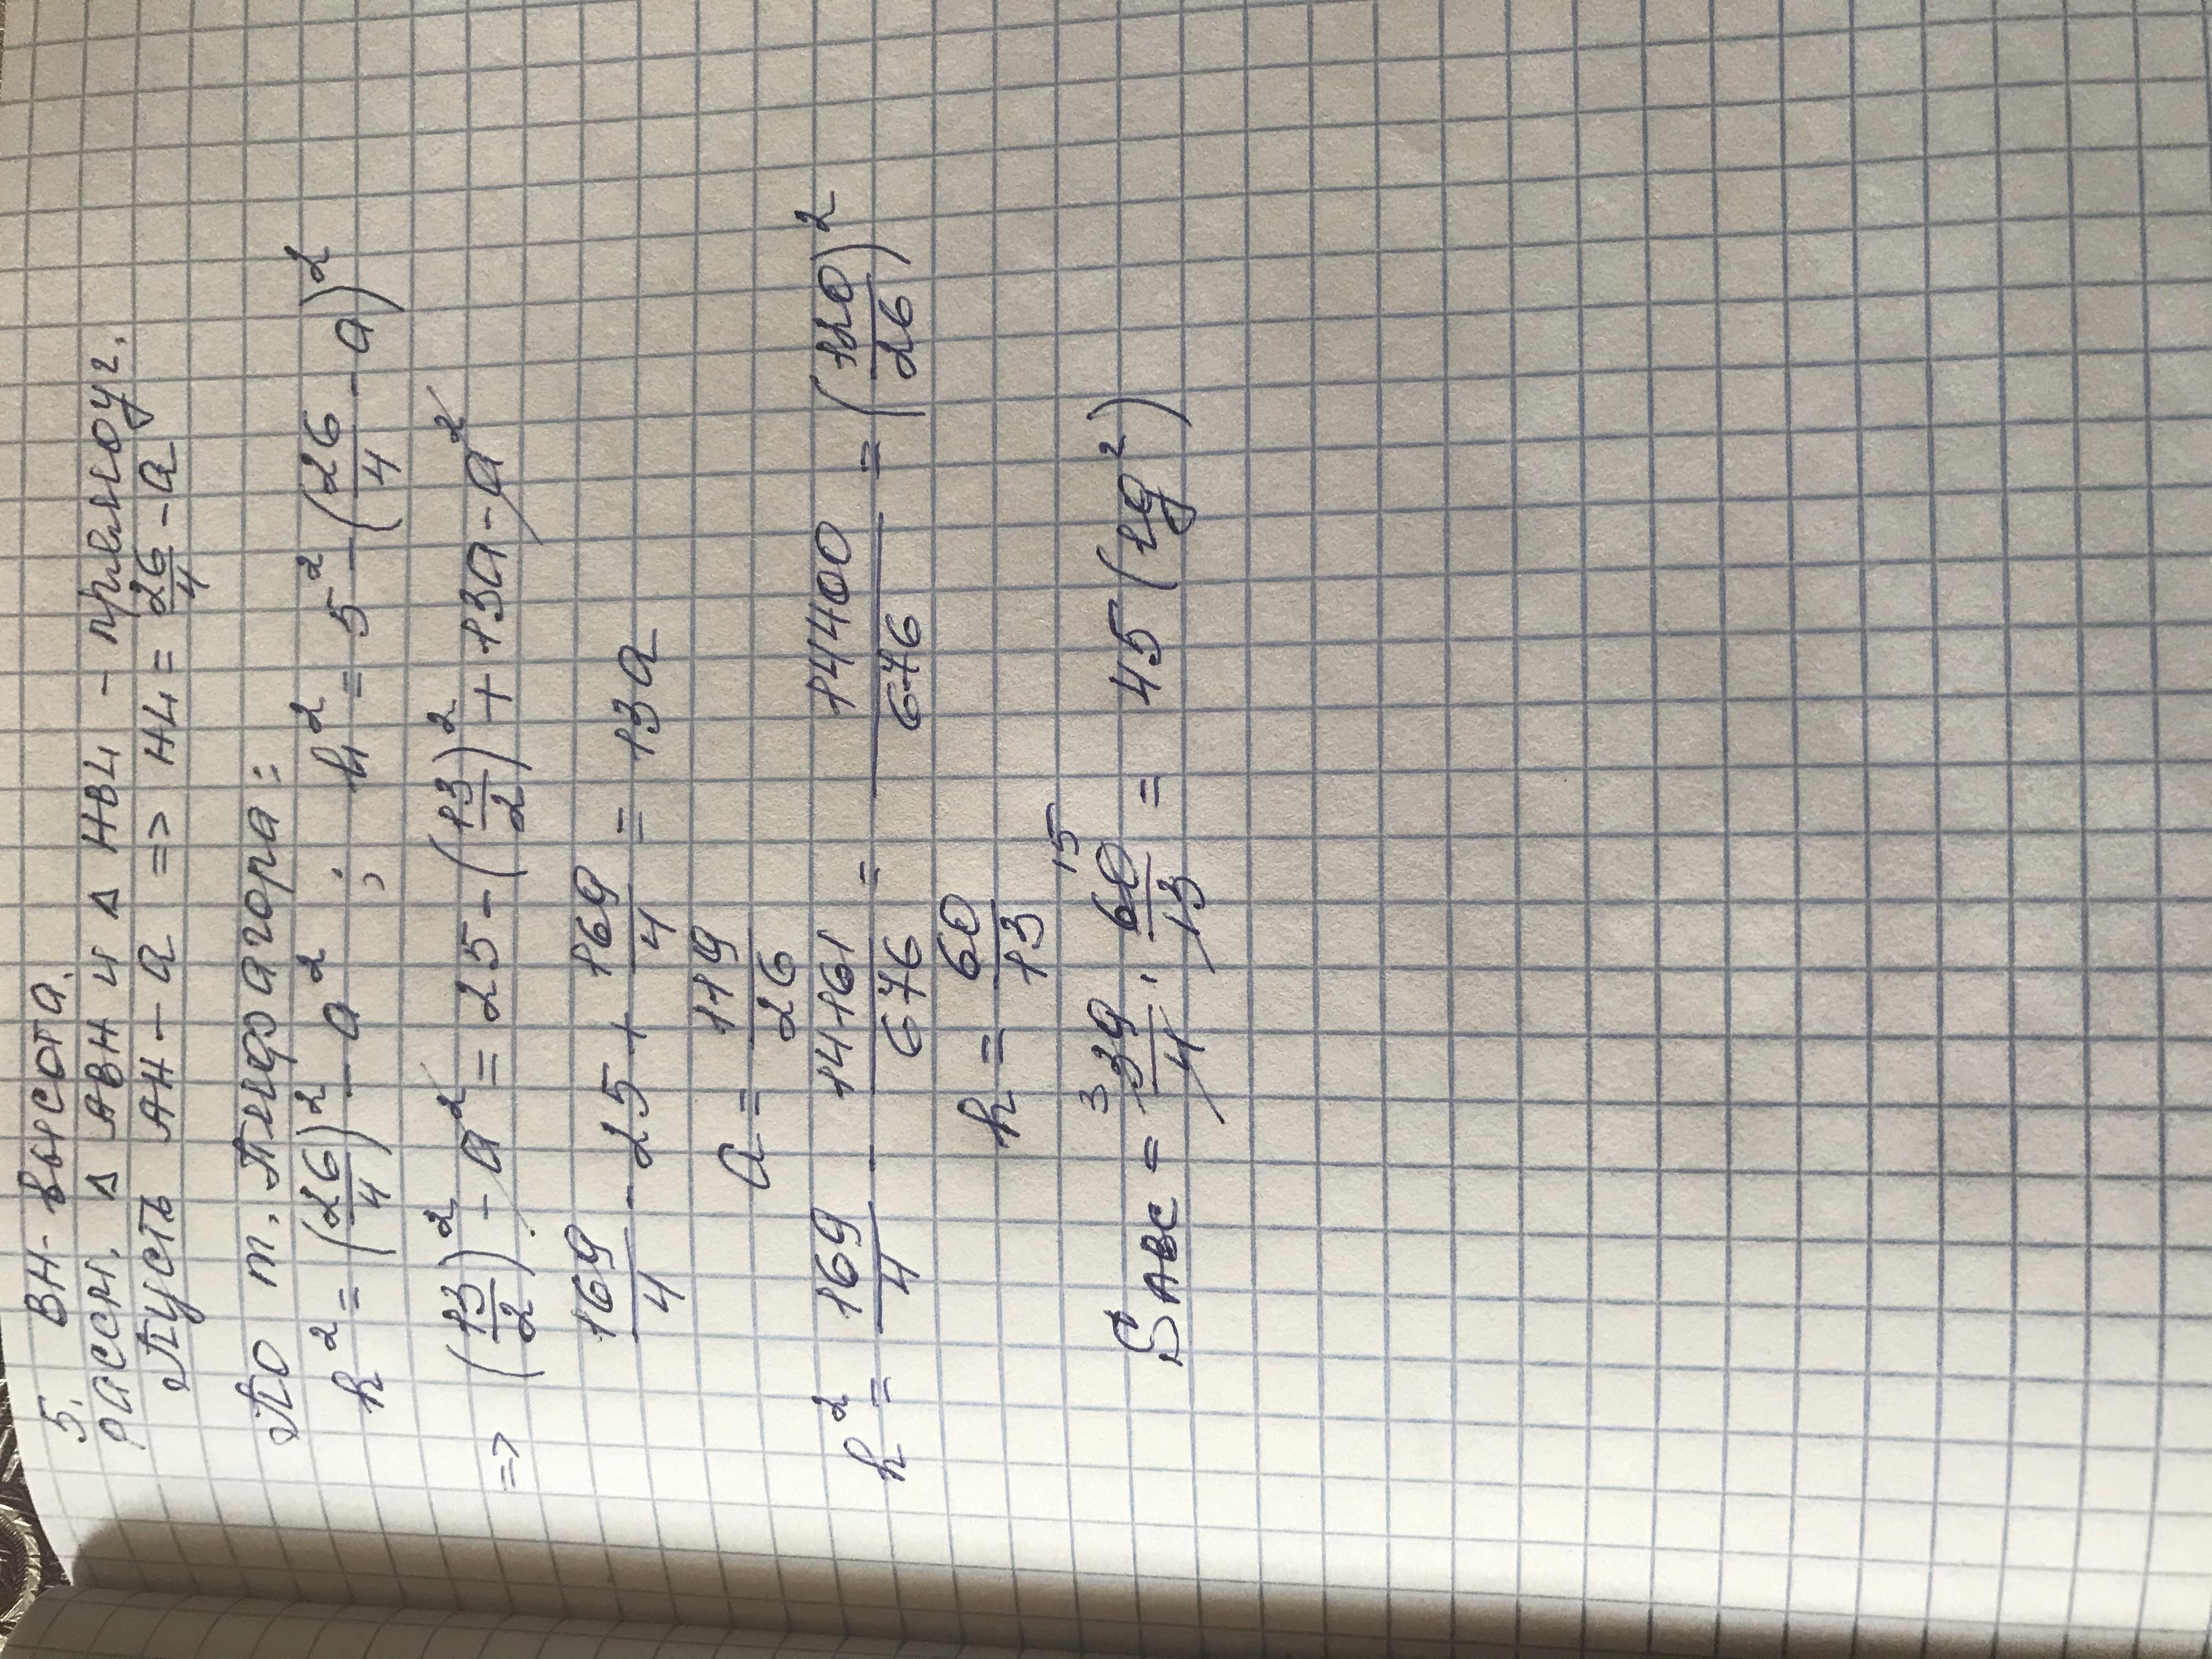 5. BH - высота.
рассм. Δ ABH и Δ HBL - прямоуг.
Пусть AH - a => HL = 26/4 - a
По т. Пифагора:
h² = (26/4)² - a² ; h² = 5² - (26/4 - a)²
=> (13/2)² - a² = 25 - (13/2)² + 13a - a²
169/4 - 25 + 169/4 = 13a
a = 119/26
h² = 169/4 - 14161/676 = 14400/676 = (120/26)²
h = 60/13
S ABC = 39/4 · 60/13 = 45 (ед²)
3 15